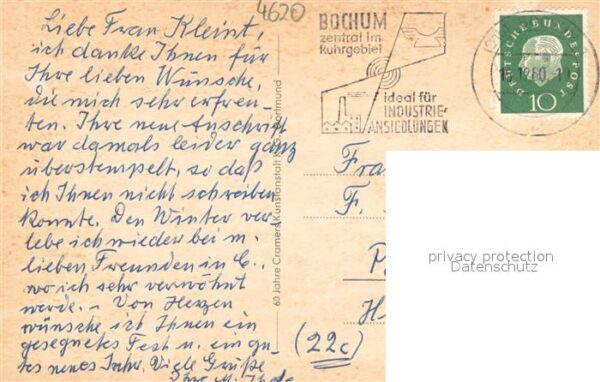 4620
Liebe Frau Kleint,
ich danke Ihnen für
Ihre lieben Wünsche,
die mich sehr erfreu-
ten. Ihre neue Anschrift
war damals leider ganz
überstempelt, so daß
ich Ihnen nicht schreiben
konnte. Den Winter ver-
lebe ich wieder bei m.
lieben Freunden in C.,
wo ich sehr verwöhnt
werde. – Von Herzen
wünsche ich Ihnen ein
gesegnetes Fest u. ein gu-
tes neues Jahr. Viele Grüße
Ihre M.
60 Jahre Cramers Kunstanstalt KG, Dortmund
BOCHUM
zentral im
Ruhrgebiet
ideal für
INDUSTRIE-
ANSIEDLUNGEN
DEUTSCHE BUNDESPOST
10
Fra
F.
H
(22c)
privacy protection
Datenschutz